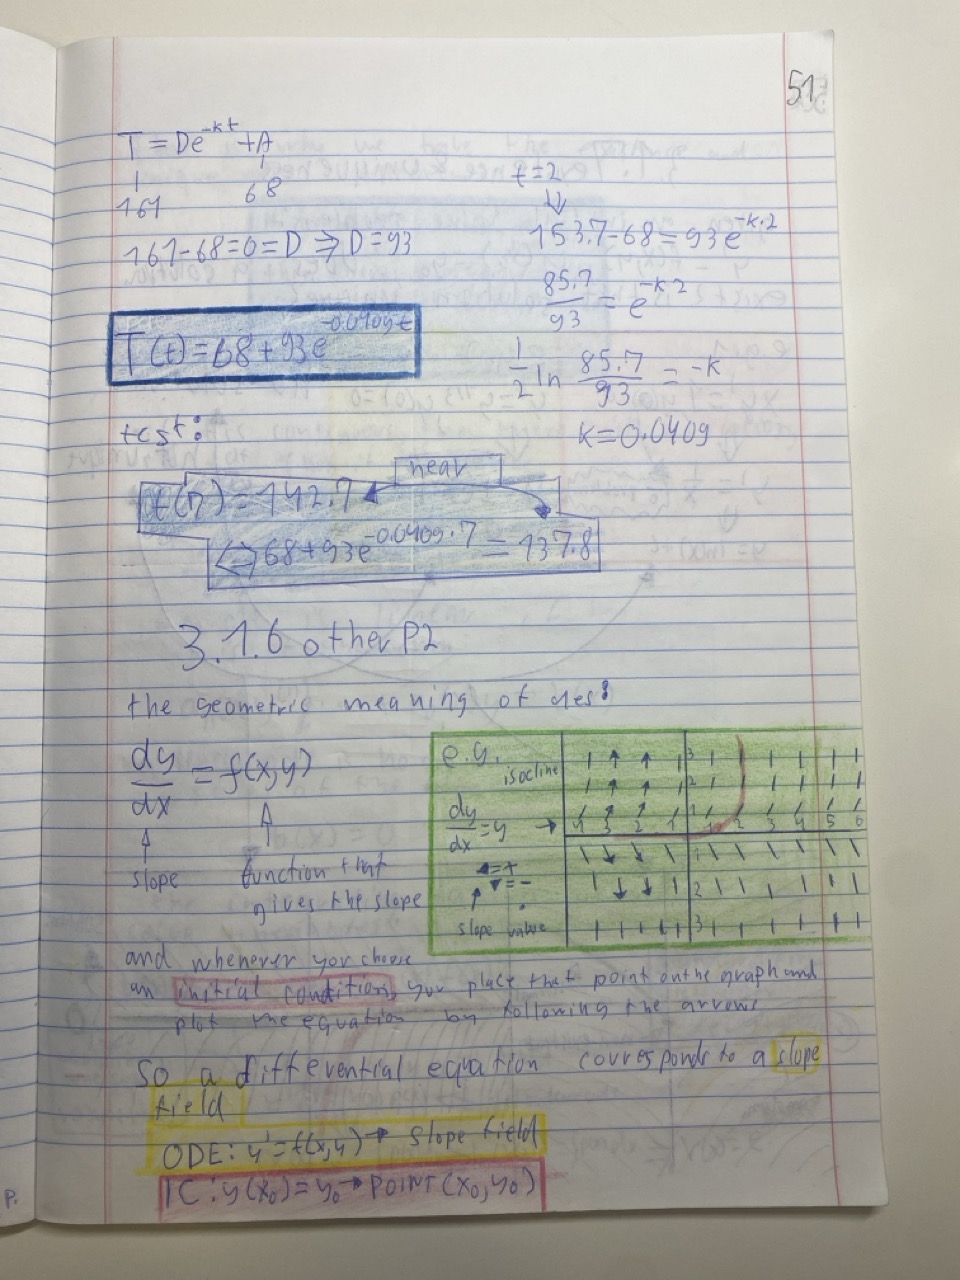 51
T = De^-kt + A
161
68
161-68=0=D ⇒ D=93
T(t)=68+93e^-0.0409t
t=2
⇓
153.7-68=93e^-k·2
85.7/93 = e^-k2
1/2 ln 85.7/93 = -k
k=0.0409
test:
near
t(7)=142.7
<-> 68+93e^-0.0409·7 = 137.8
3.1.6 other P2
the geometric meaning of des:
dy/dx = f(x,y)
slope
function that
gives the slope
e.g.
isocline
dy/dx = y →
▲=+
▼=-
slope value
3
2
1
4 3 2 1 1 2 3 4 5 6
1
2
3
and whenever you choose
an initial condition, you place that point on the graph and
plot the equation by following the arrows
So a differential equation corresponds to a slope
field
ODE: y'=f(x,y) → slope field
IC: y(x₀)=y₀ → POINT(x₀,y₀)
P.